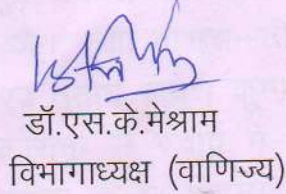 डॉ.एस.के.मेश्राम
विभागाध्यक्ष (वाणिज्य)